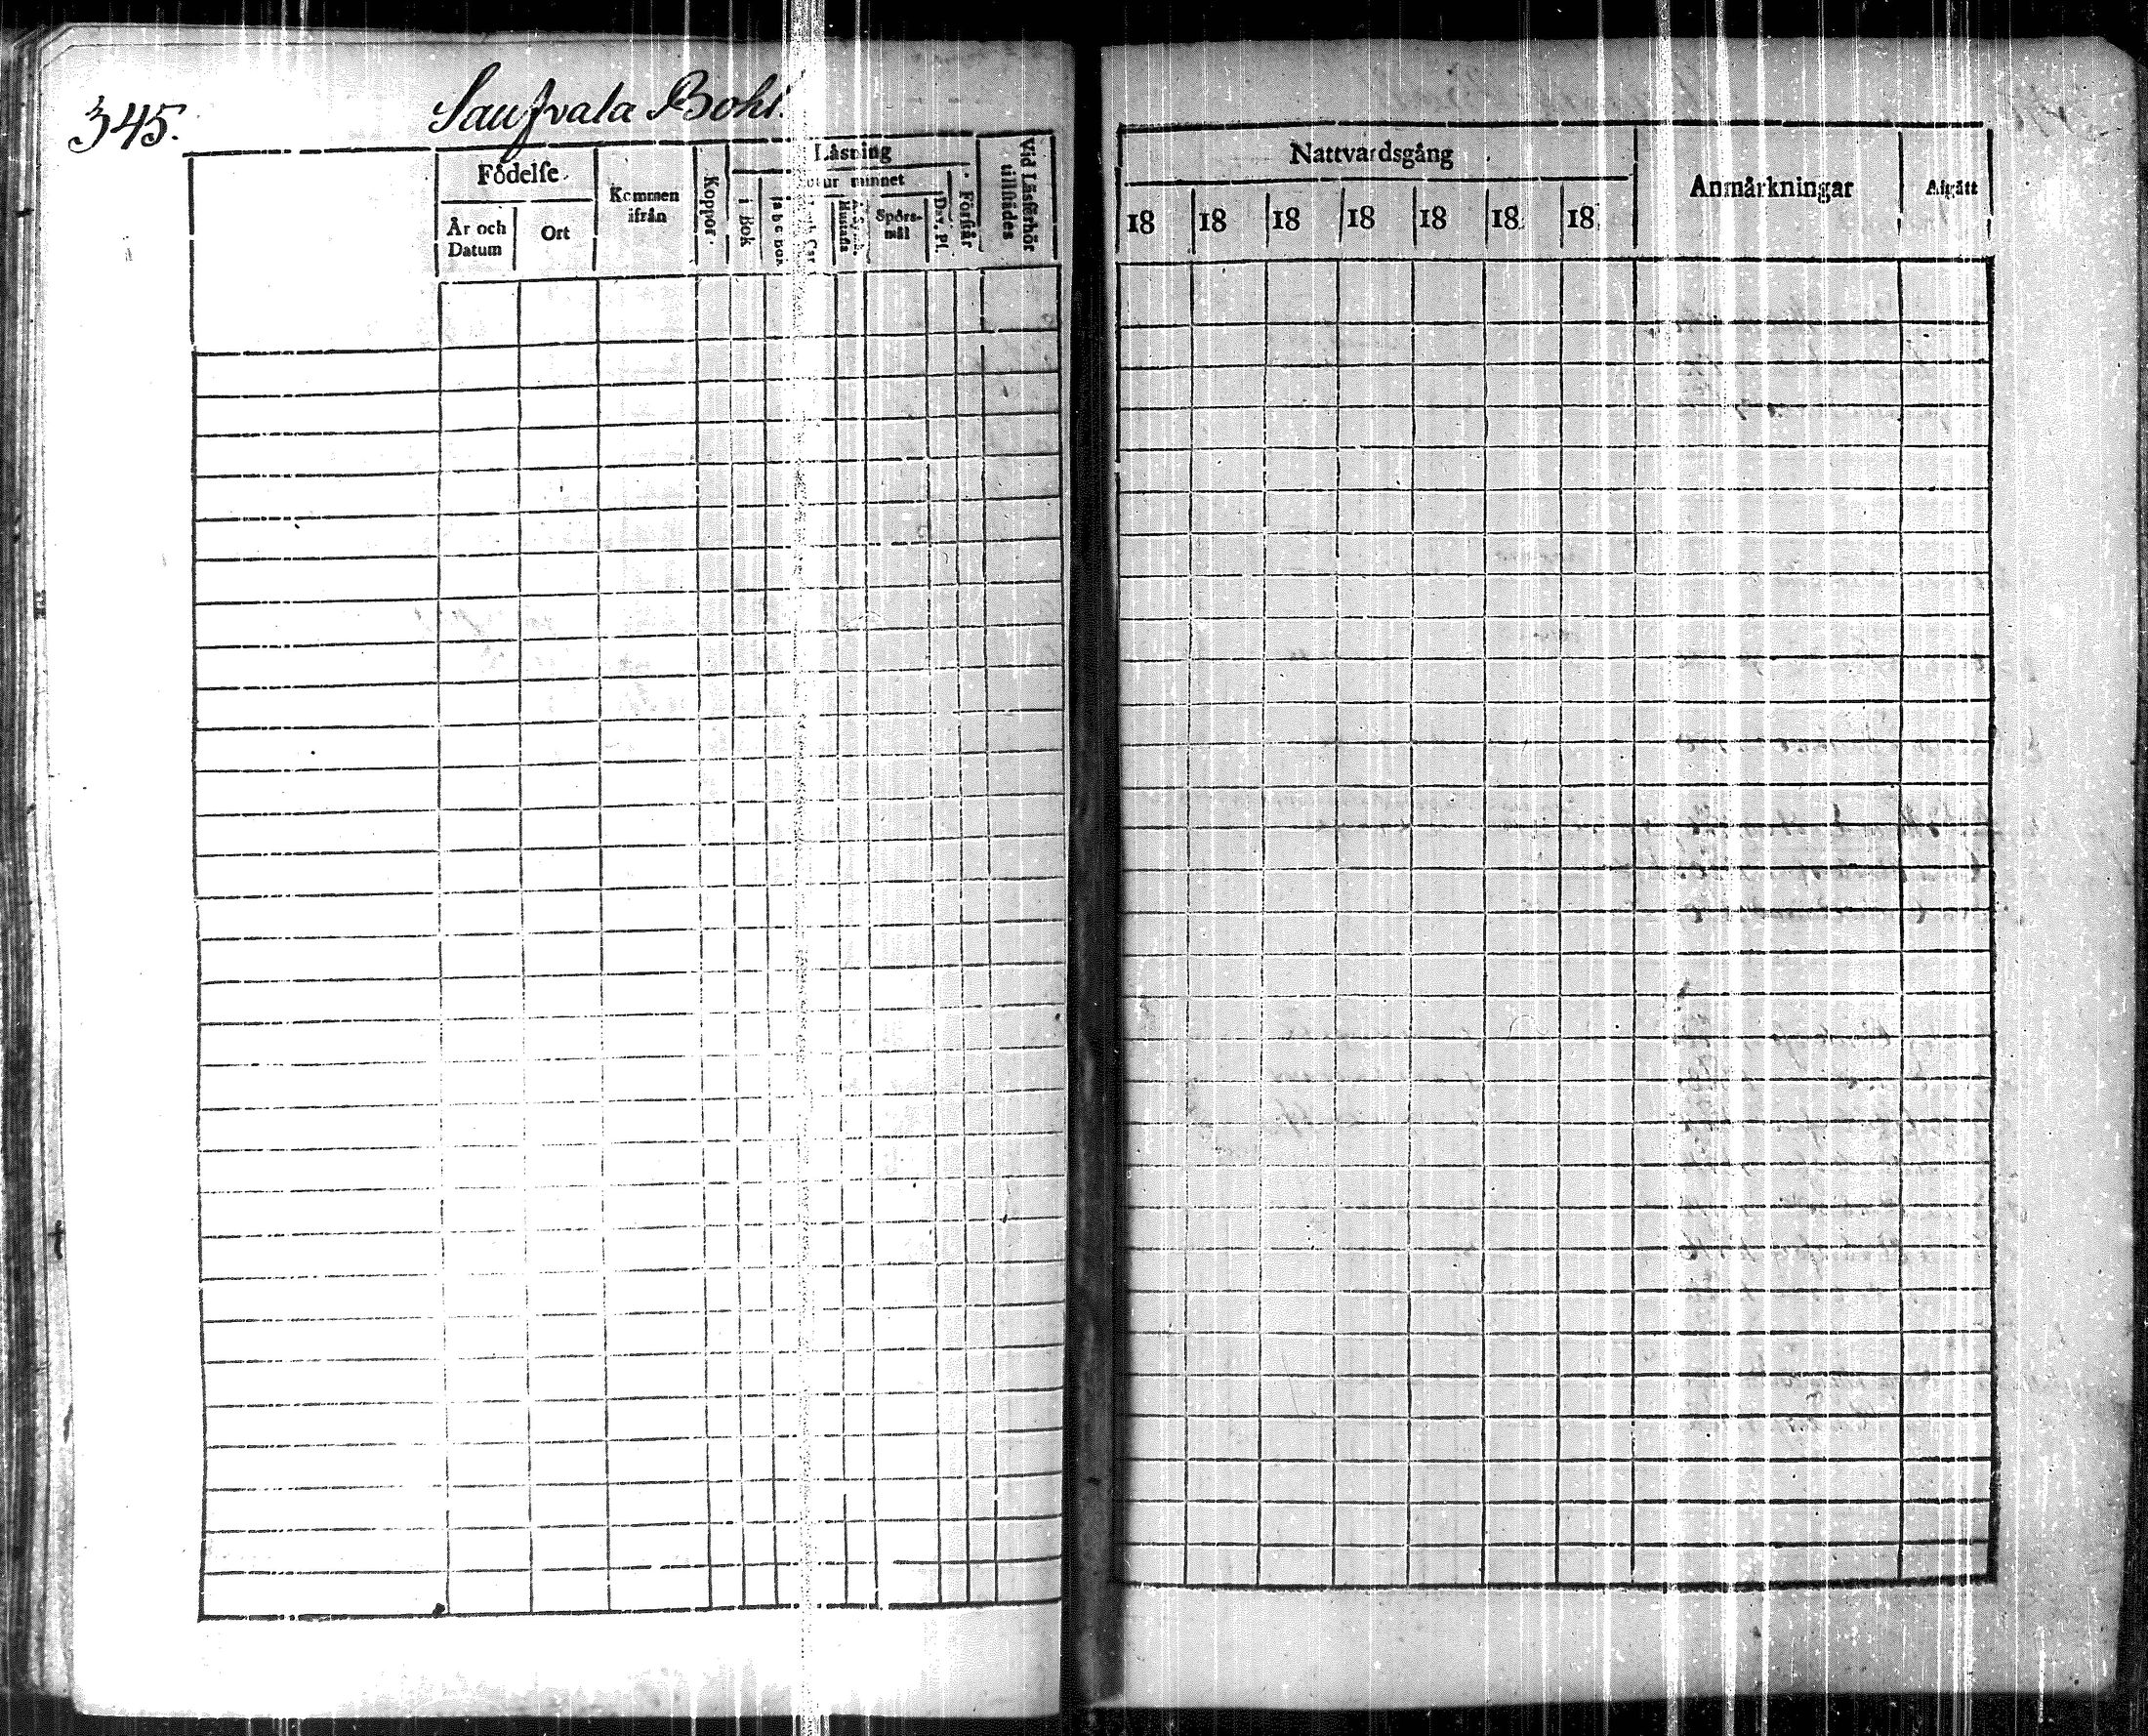 345.
Saufvala Bohl.
Födelse
Kommen ifrån
Koppor.
Läsning
Vid Läsförhör tillstädes
År och Datum
Ort
i Bok
utur minnet
Hustafla
Spörs-mål
Dav. Pl.
Förstår
Nattvardsgång
Anmärkningar
Afgått
18 18 18 18 18 18 18